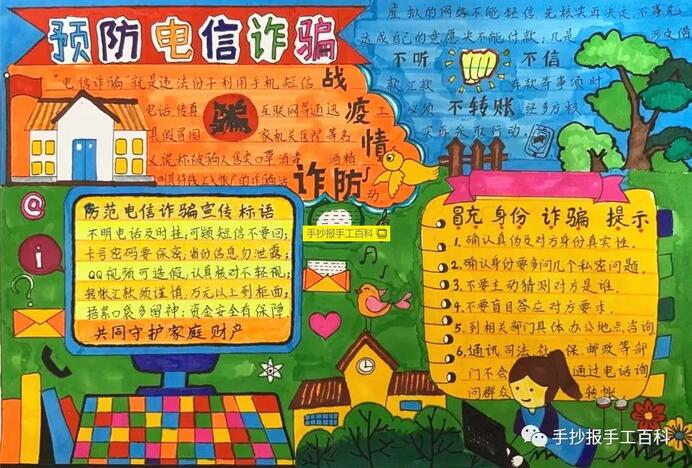 预防电信诈骗
"电信诈骗"就是违法份子利用手机短信
电话、传真 互联网等通过
家机关医院等名
战疫情
诈防
骗
虚拟的网络不能轻信,先核实再决定,不事先
达成自己的意愿决不能付款;凡是
不听 不信
款汇款 存款等事项时
必须 不转账 经多方核
实再采取行动。
防范电信诈骗宣传标语
不明电话及时挂;可疑短信不要回;
卡号密码要保密;身份信息勿泄露;
QQ视频可造假,认真核对不轻视;
转账汇款须谨慎,万元以上到柜面;
捂紧口袋多留神;资金安全有保障
共同守护家庭财产
手抄报手工百科
冒充身份诈骗提示
1.确认真伪及对方身份真实性。
2.确认身份要多问几个私密问题。
3.不要主动猜测对方是谁。
4.不要盲目答应对方要求。
5.到相关部门具体办公地点咨询
6.通讯、司法、社保、邮政等部
门不会 通过电话询
问群众 转帐
手抄报手工百科